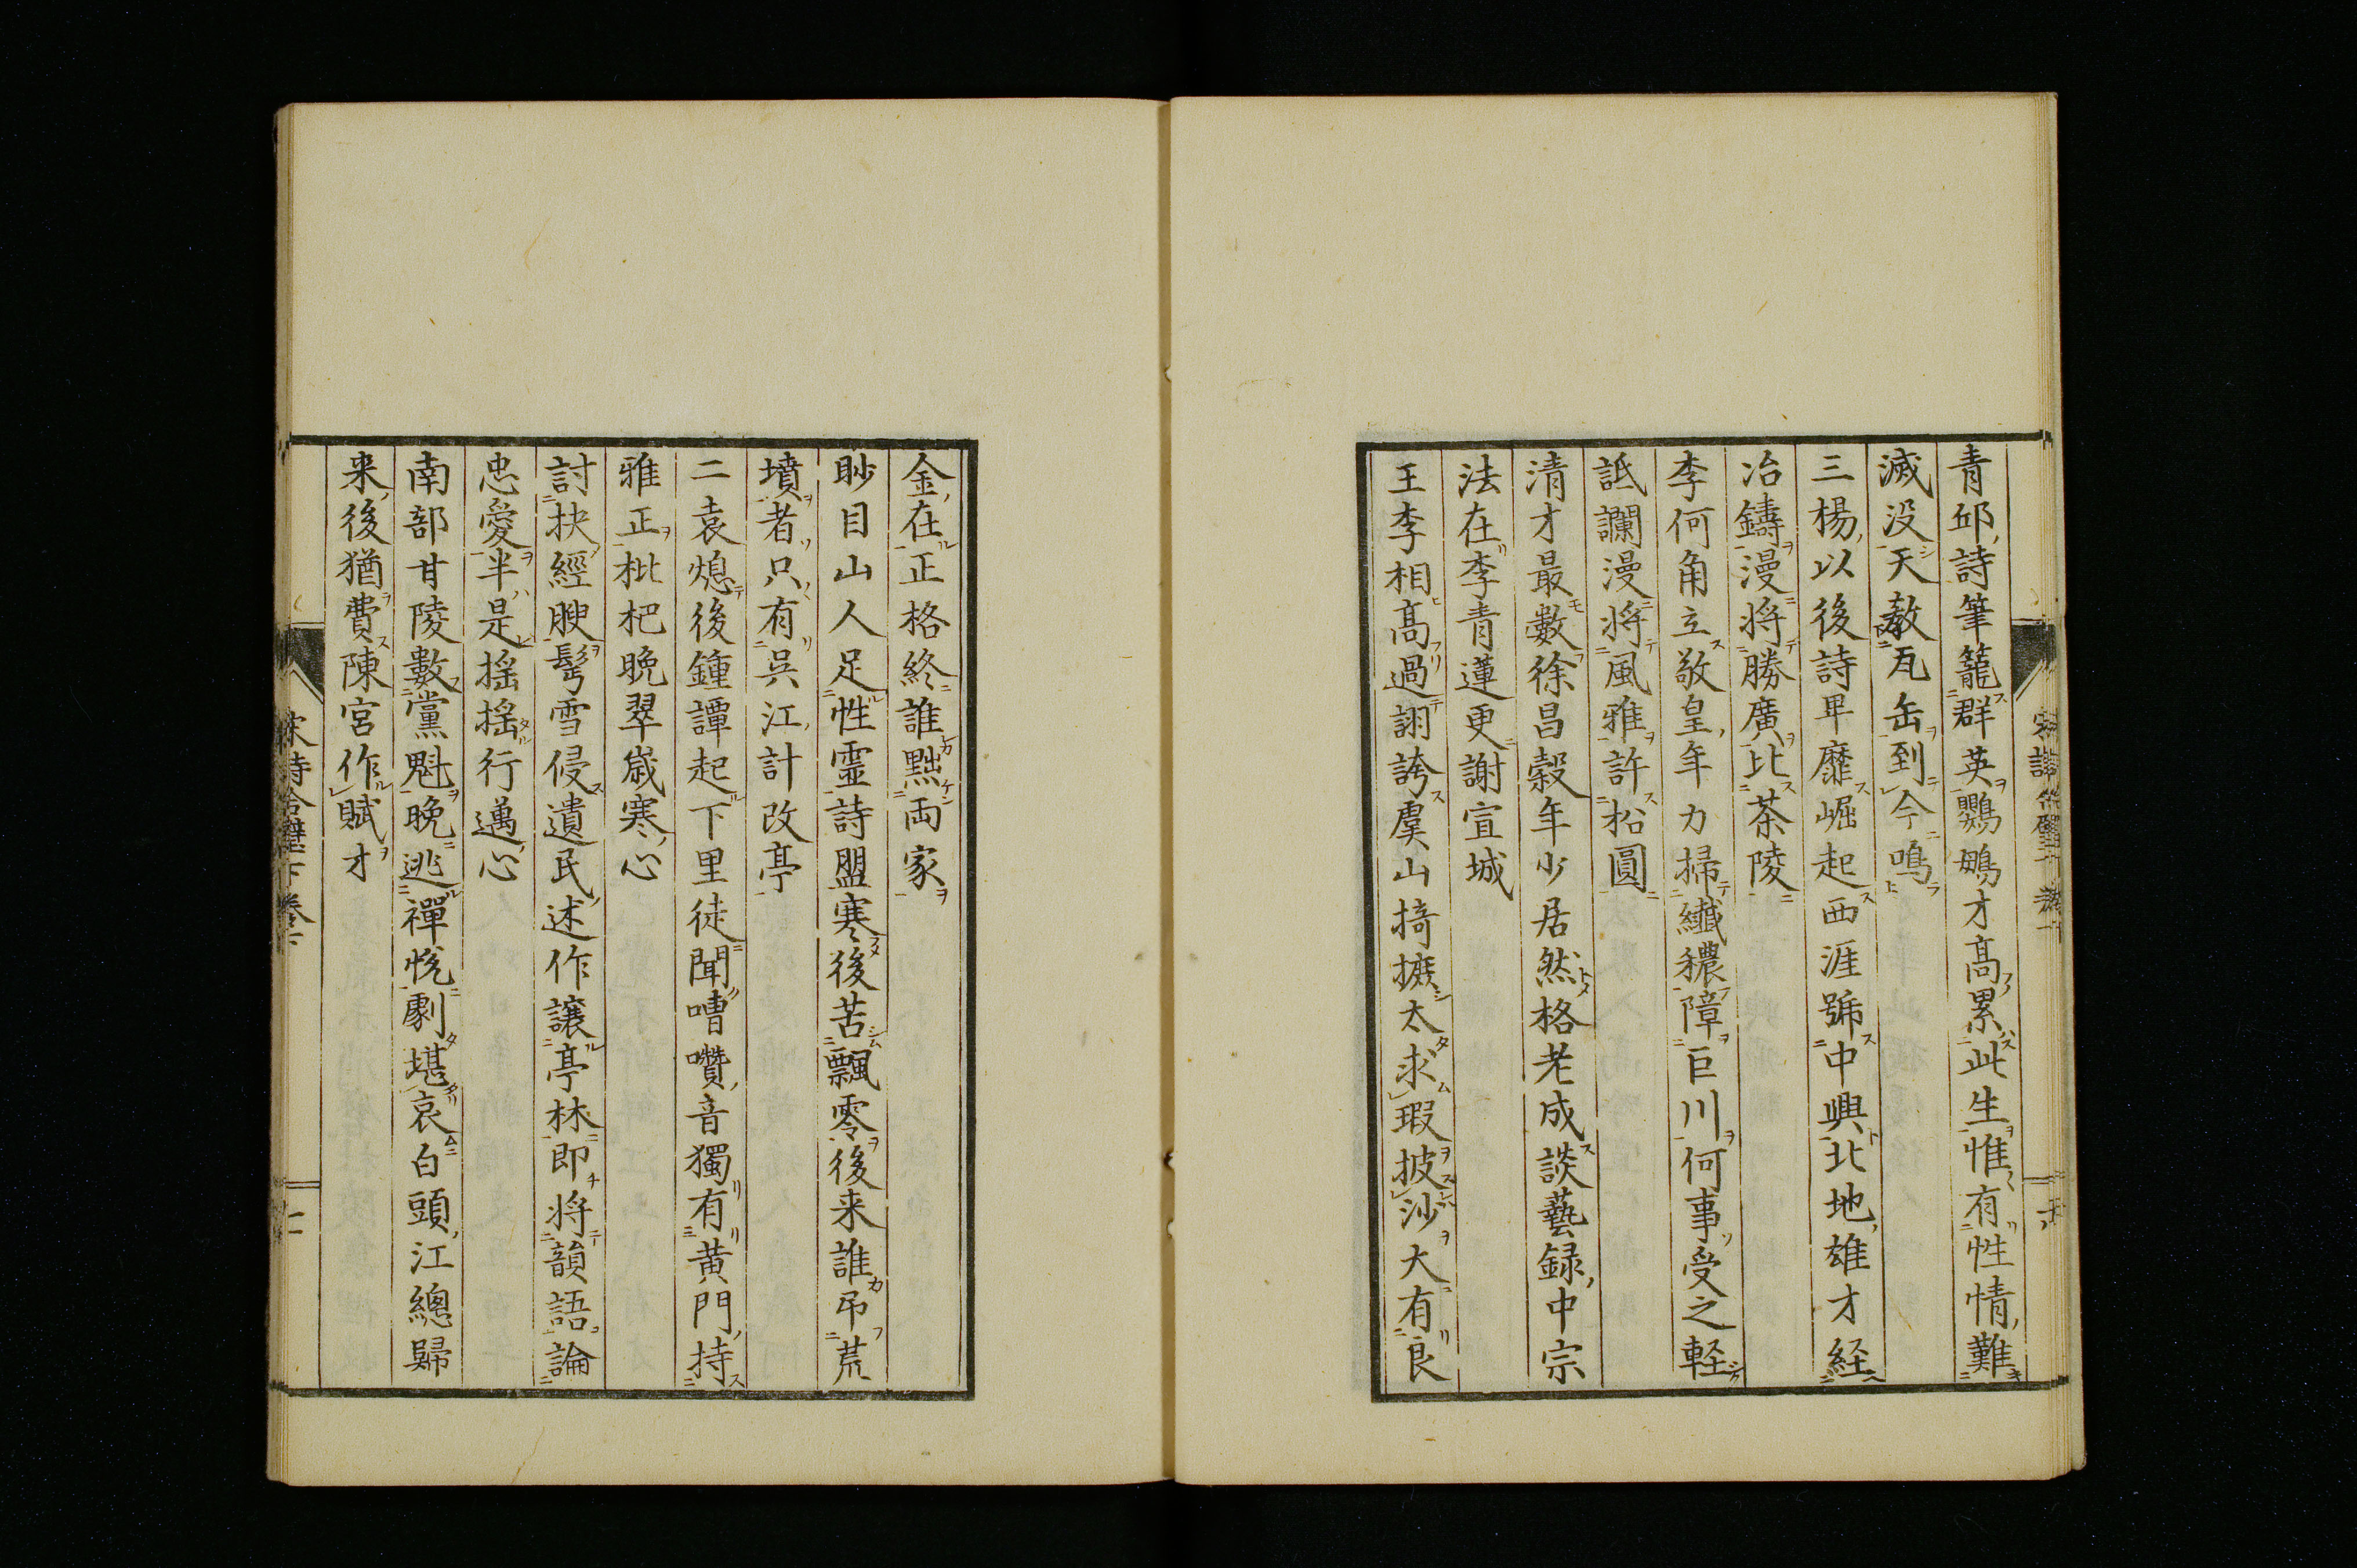 青邱詩筆籠群英鸚鵡才高累此生惟有性情難
滅没天教瓦缶到今鳴
三楊以後詩卑靡崛起西涯號中興北地雄才経
冶鑄漫将勝廣比茶陵
李何角立敬皇年力掃纎穠障巨川何事受之輕
詆讕漫将風雅許松圓
清才最數徐昌榖年少居然格老成談藝録中宗
法在李青蓮更謝宣城
王李相髙過詡誇虞山掎摭太求瑕披沙大有良
金在正格終誰黜両家
眇目山人足性霊詩盟寒後苦飄零後来誰弔荒
墳者只有呉江計改亭
二袁熄後鍾譚起下里徒聞嘈囋音獨有黄門持
雅正枇杷晩翠歳寒心
討抉經腴髩雪侵遺民述作讓亭林即将韻語論
忠愛半是揺揺行邁心
南部甘陵數黨魁晩逃禪悦劇堪哀白頭江總歸
来後猶費陳宮作賦才